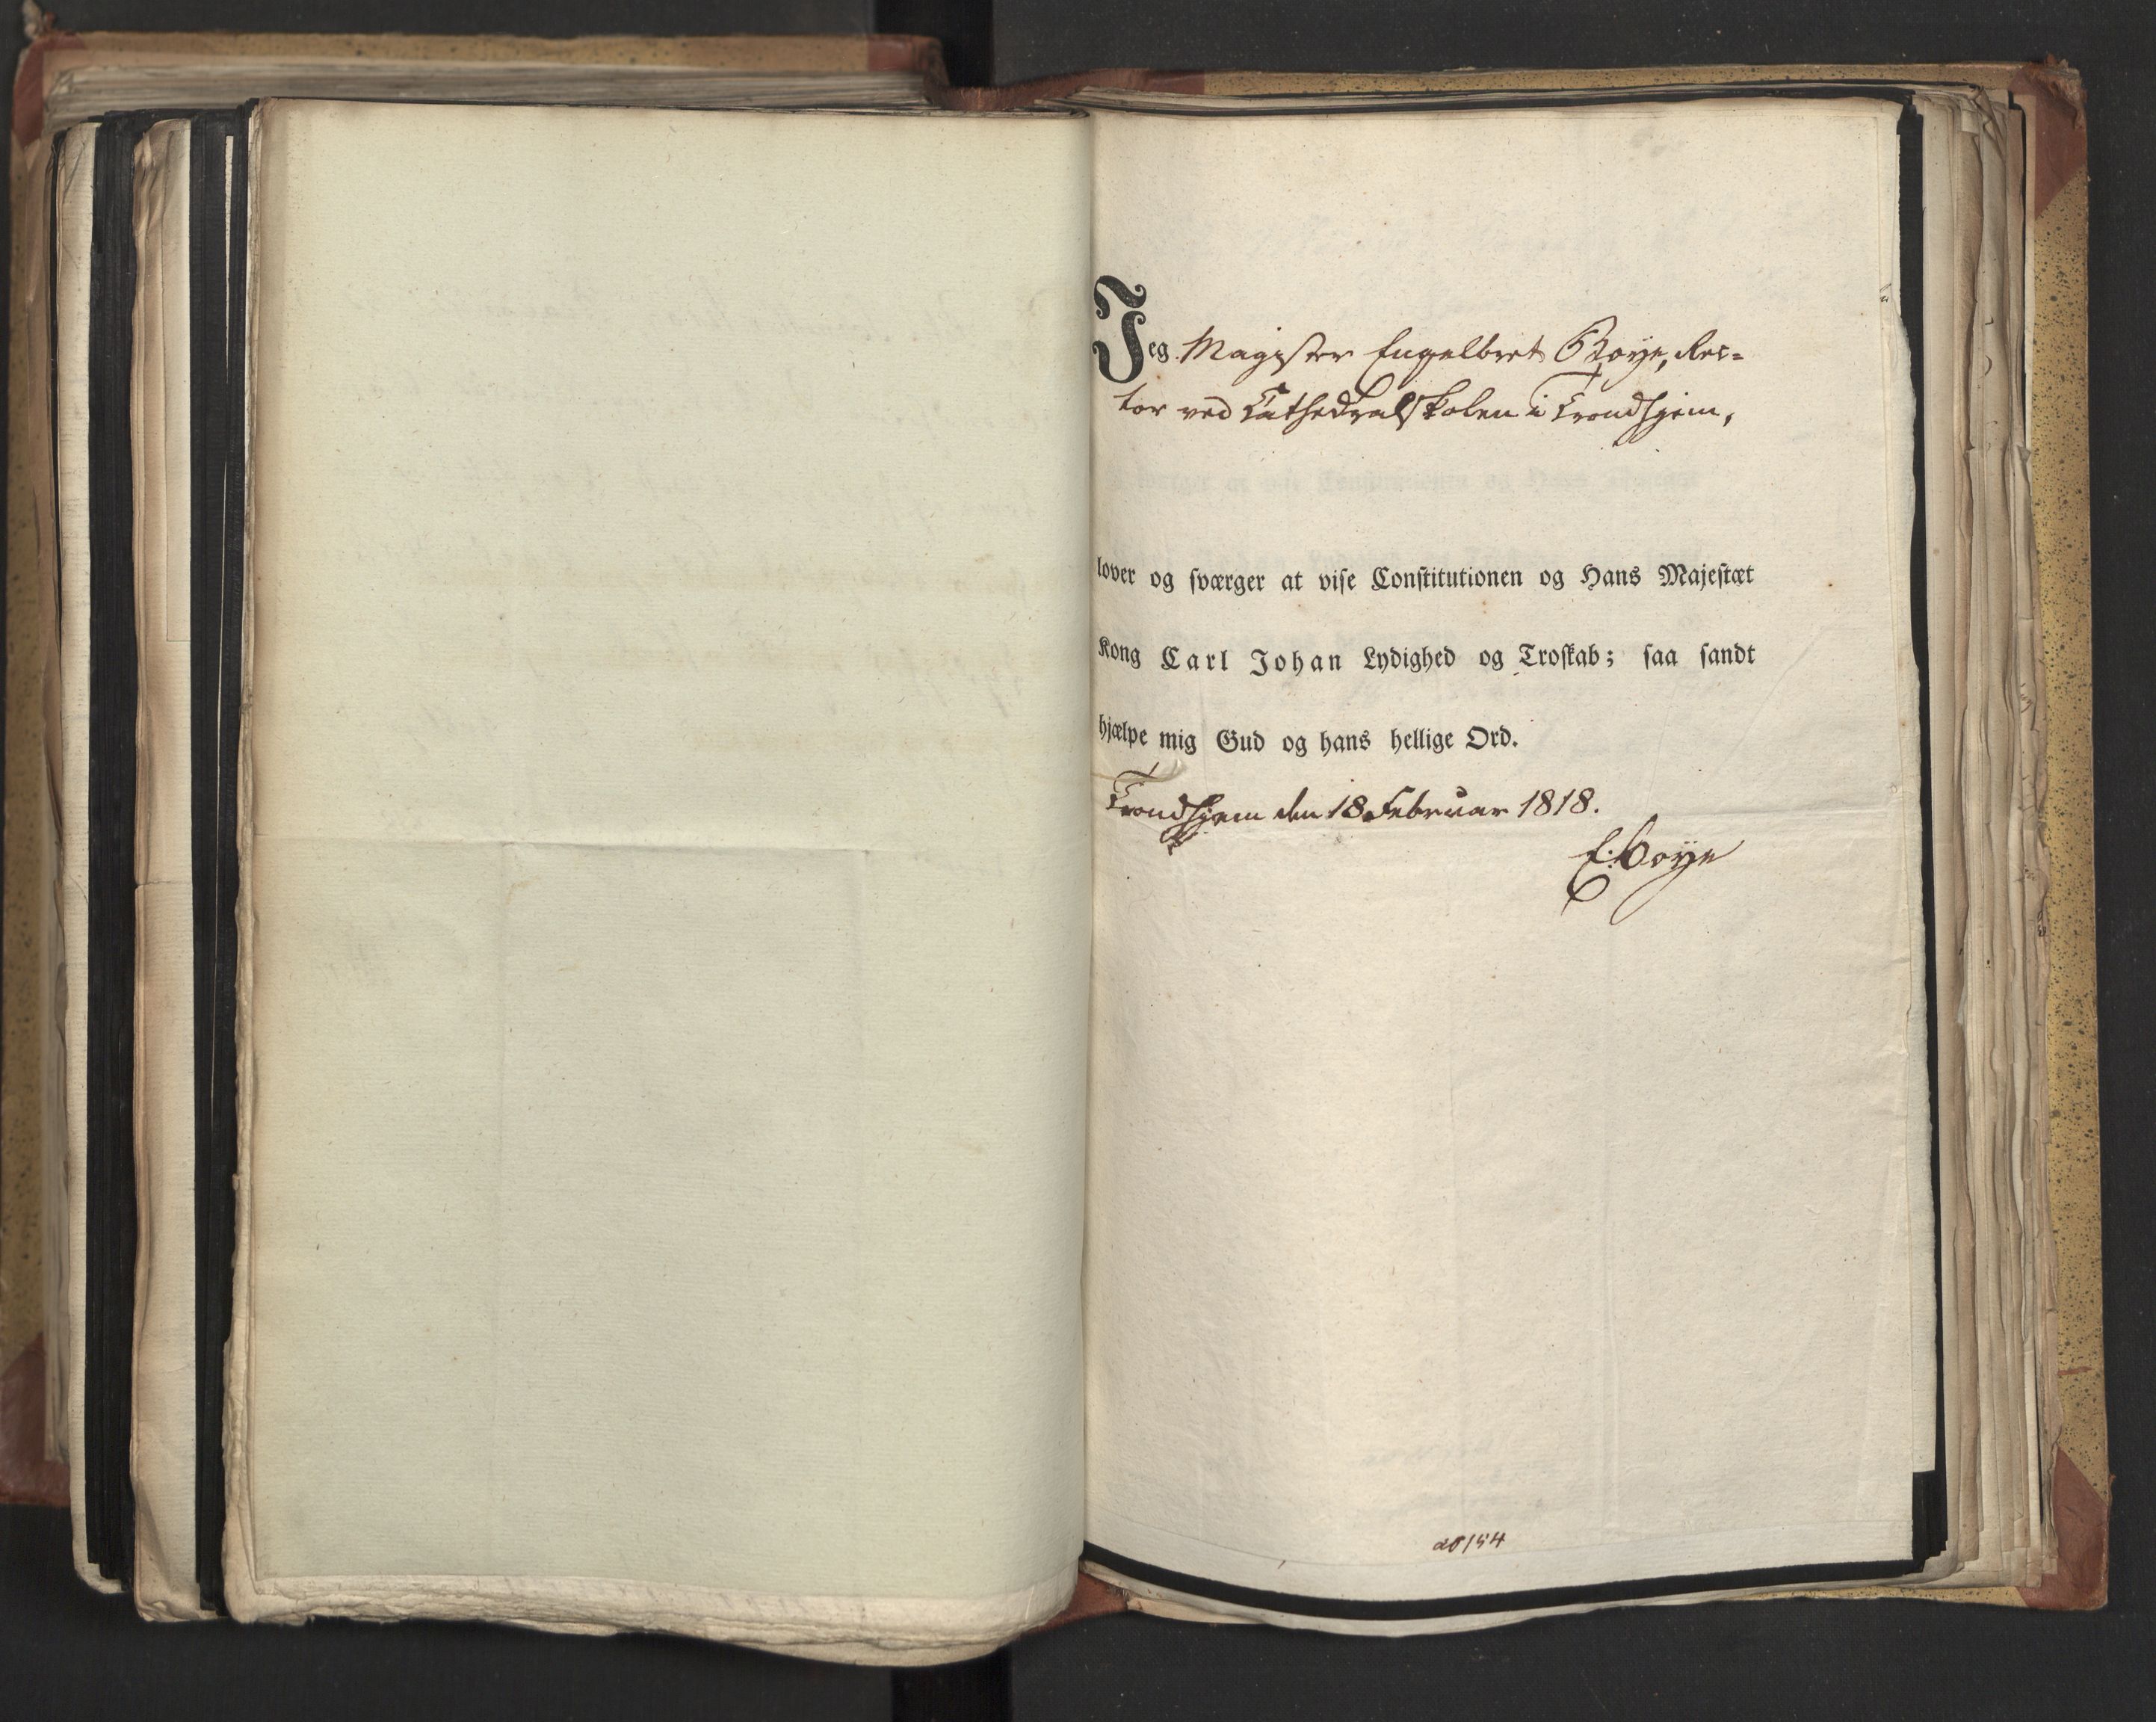 Jeg Magister Engelbret Boye, Rec-
tor ved Cathedralskolen i Trondhjem,
lover og sværger at vise Constitutionen og Hans Majestæt
Kong Carl Johan Lydighed og Troskab; saa sandt
hjælpe mig Gud og hans hellige Ord.
Trondhjem den 18 Februar 1818.
E. Boye